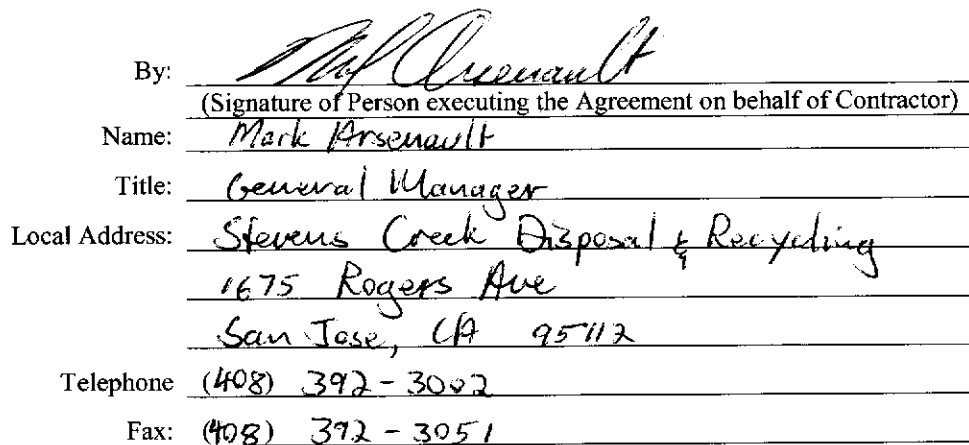 By: Mark Arsenault
(Signature of Person executing the Agreement on behalf of Contractor)
Name: Mark Arsenault
Title: General Manager
Local Address: Stevens Creek Disposal & Recycling
1675 Rogers Ave
San Jose, CA 95112
Telephone (408) 392-3002
Fax: (408) 392-3051